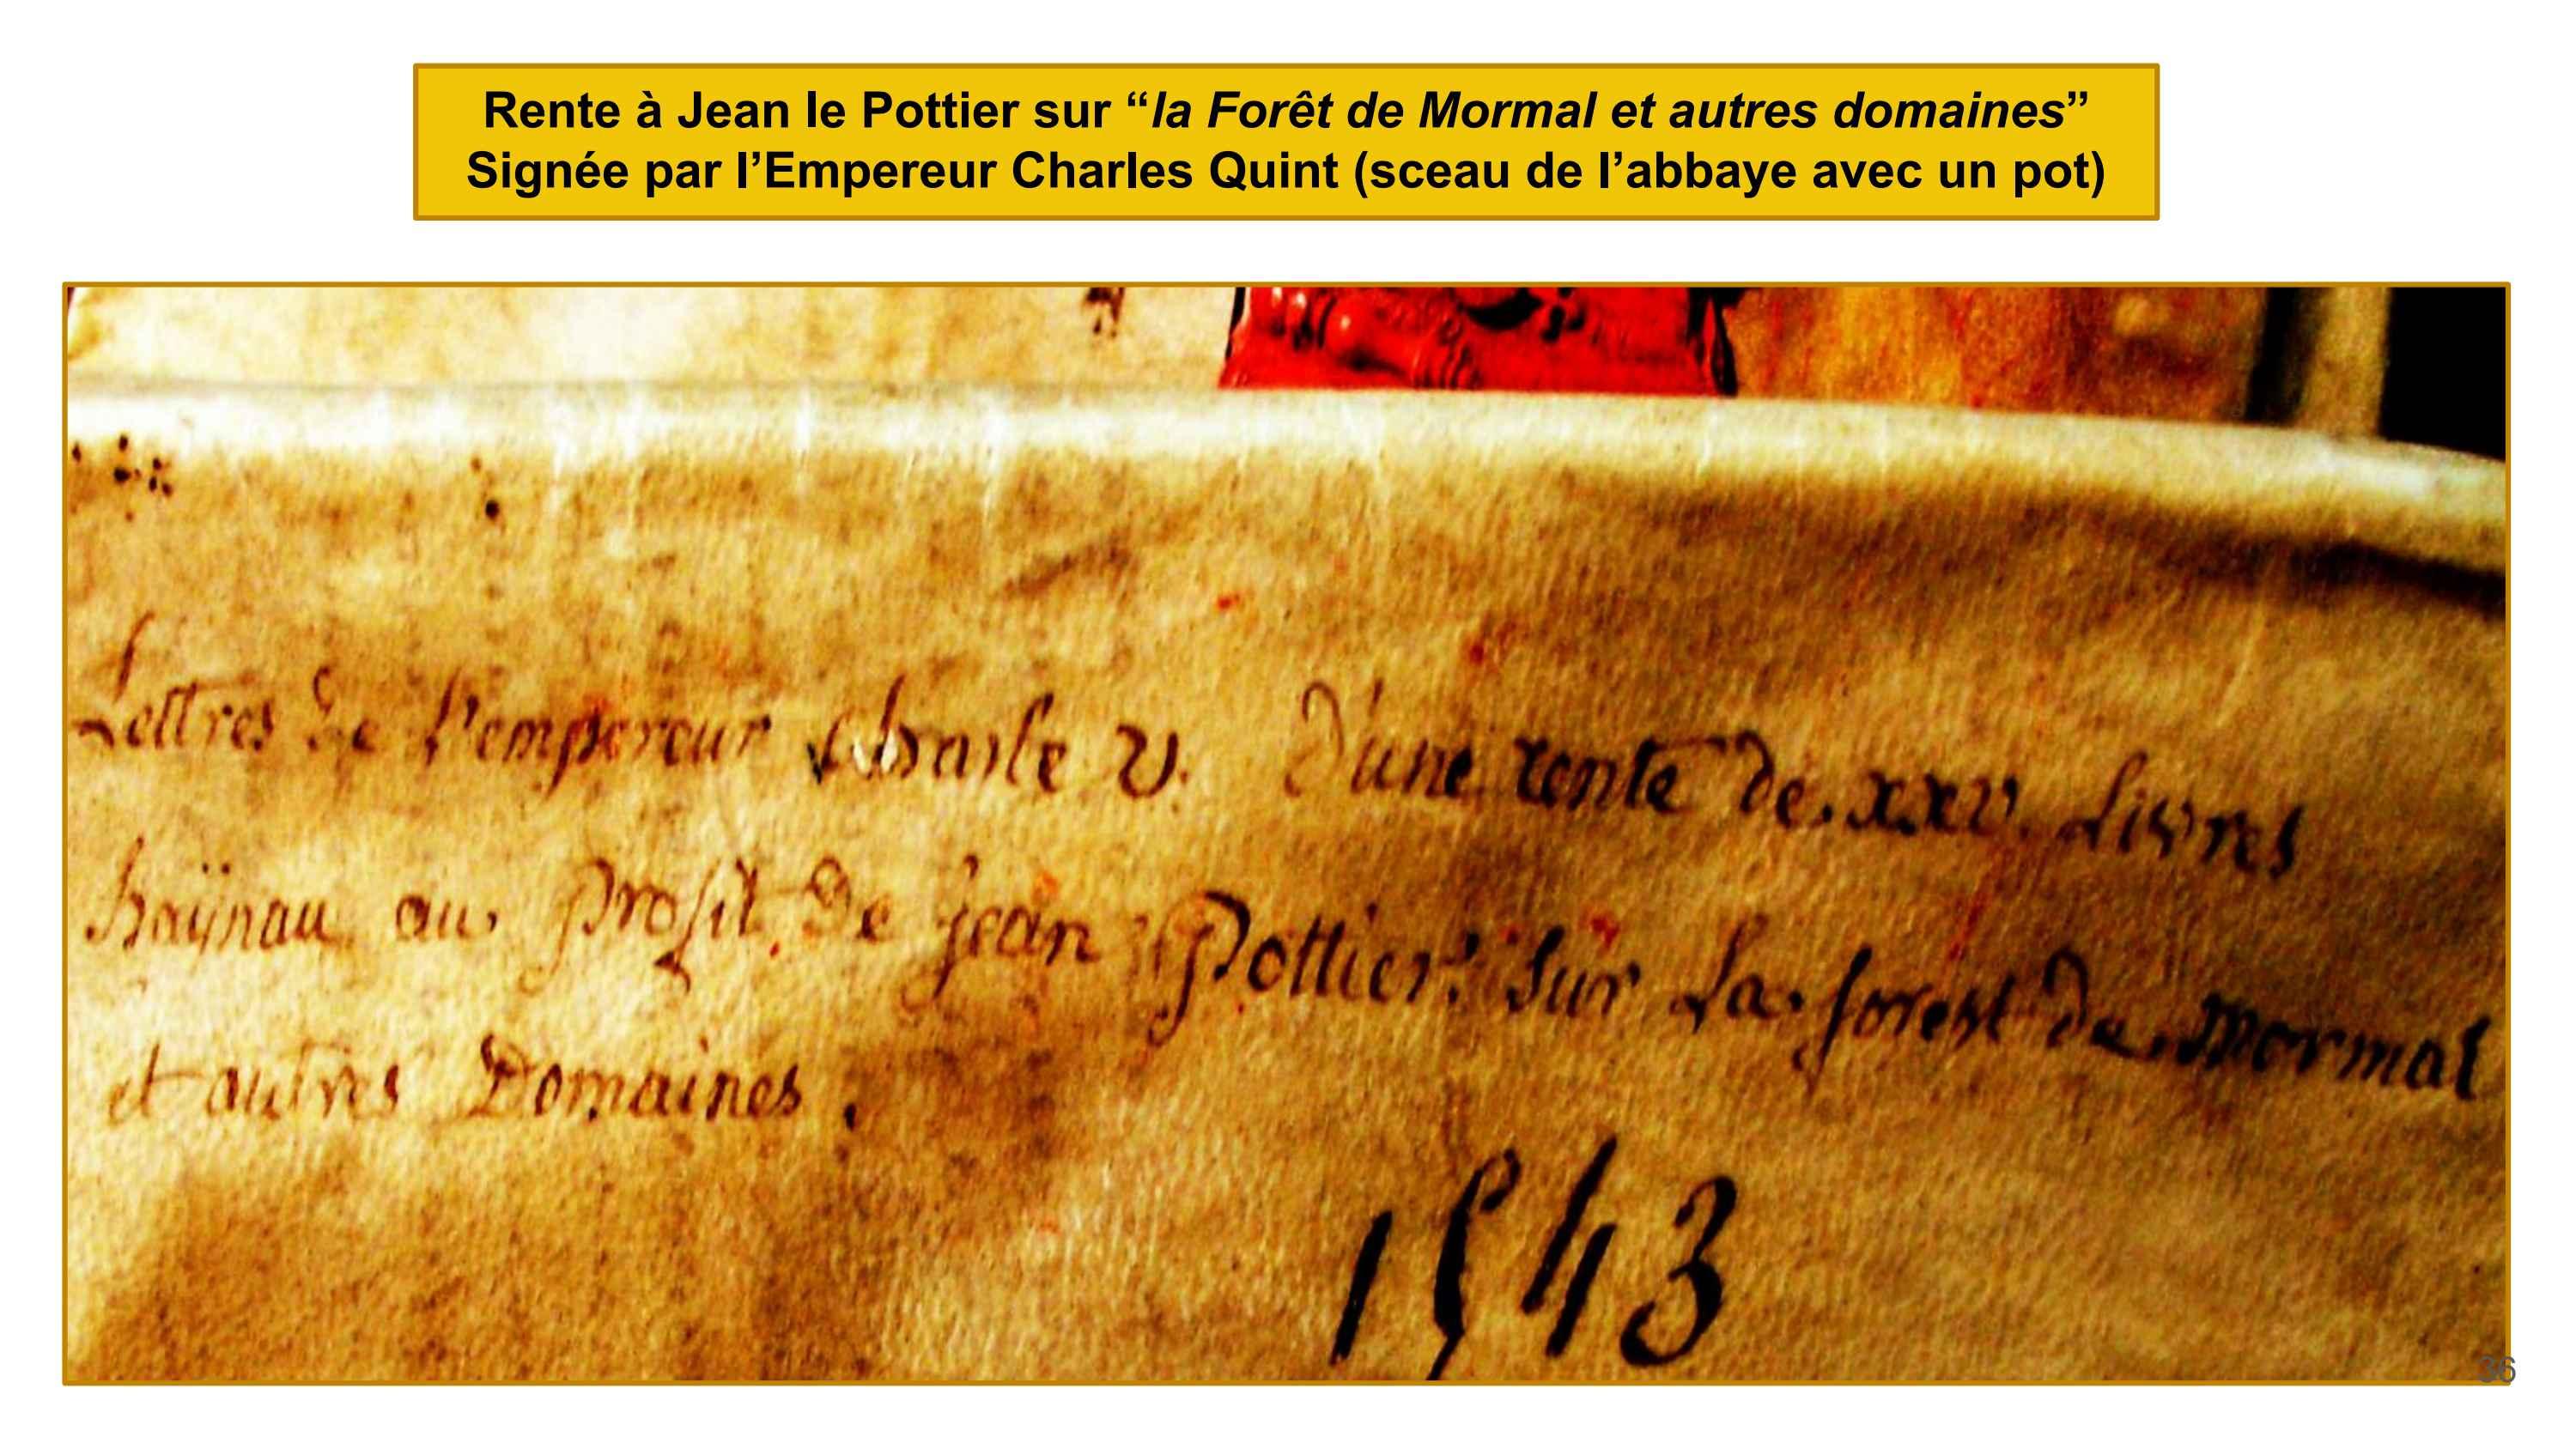 Rente à Jean le Pottier sur “la Forêt de Mormal et autres domaines”
Signée par l’Empereur Charles Quint (sceau de l’abbaye avec un pot)
Lettres de l'empereur Charle v. d'une rente de xxv. Livres
haÿnau au profit de jean Pottier sur La forest de Mormal
et autres Domaines.
1543
36